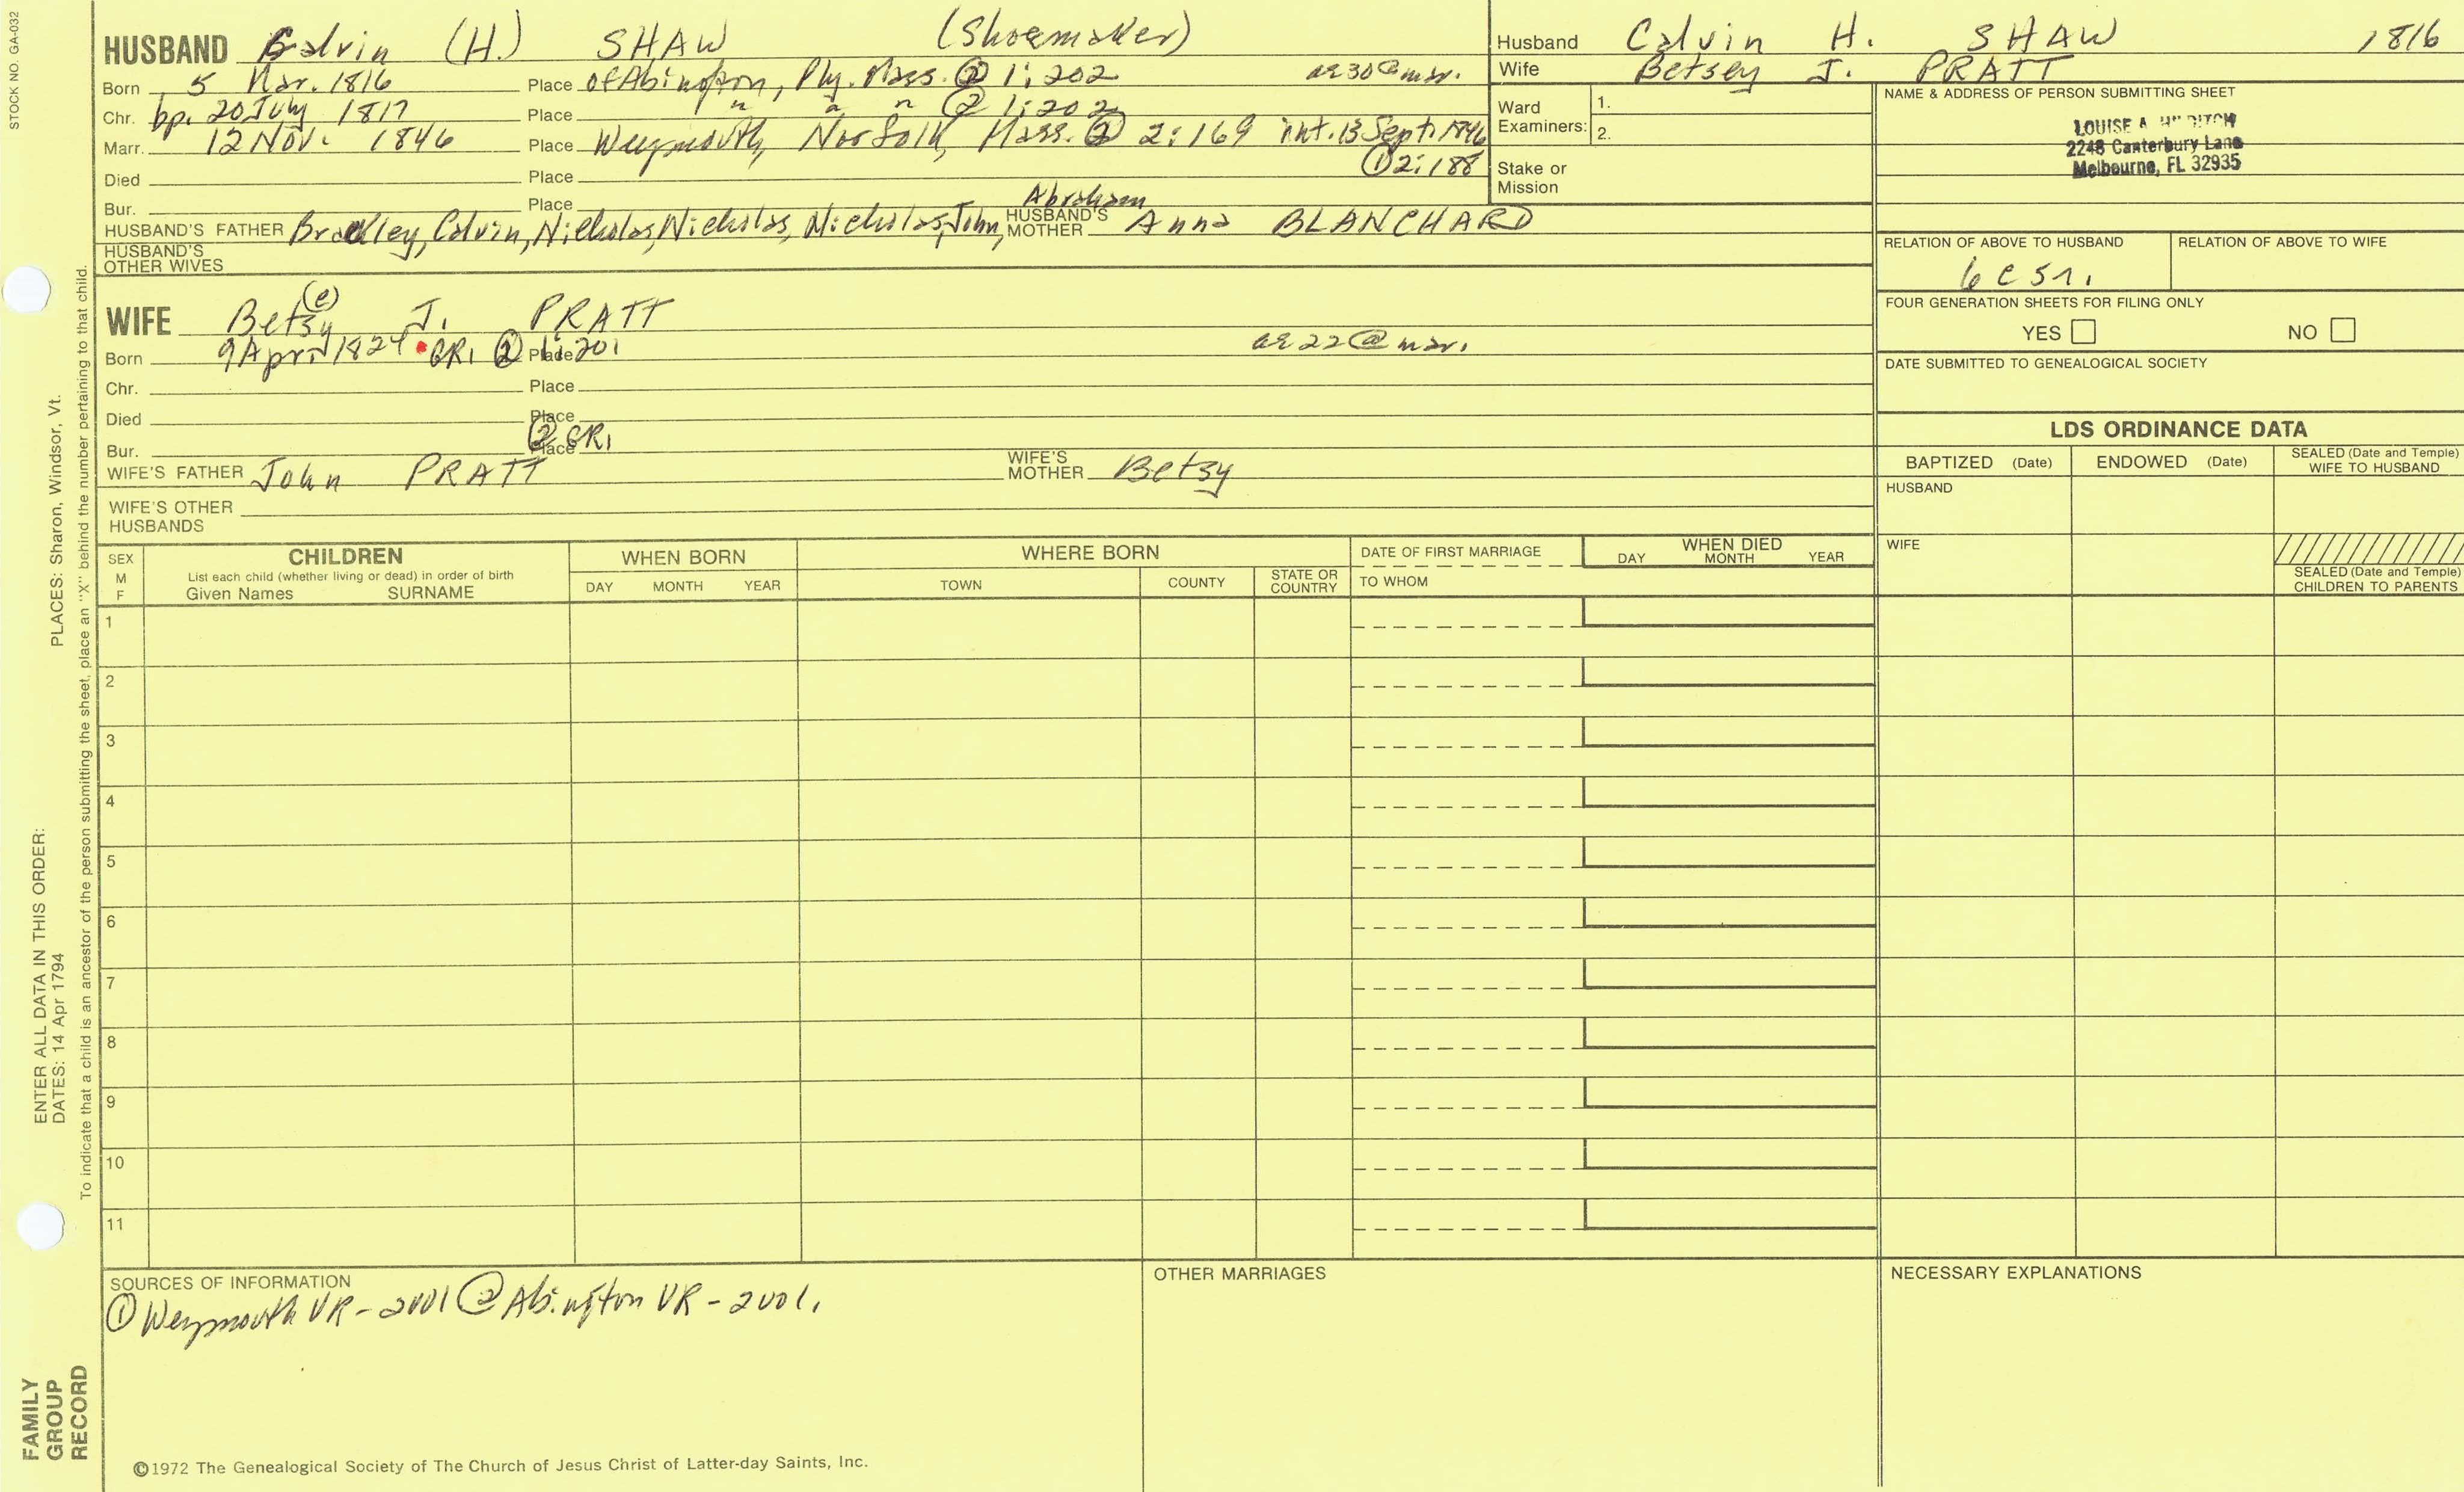 STOCK NO. GA-032
HUSBAND Calvin (H.) SHAW (Shoemaker)
Born 5 Mar. 1816 Place of Abington, Ply. Mass. ② 1:202 ae 30 @ mar.
Chr. bp. 20 July 1817 Place " " " ② 1:202
Marr. 12 Nov. 1846 Place Weymouth, Norfolk, Mass. ② 2:169 int. 13 Sept. 1846
Died Place ① 2:188
Bur. Place
Abraham
HUSBAND'S FATHER Brackley, Calvin, Nicholas, Nicholas, Nicholas, John, HUSBAND'S MOTHER Anna BLANCHARD
HUSBAND'S OTHER WIVES
Husband Calvin H. SHAW 1816
Wife Betsey J. PRATT
Ward Examiners: 1.
2.
Stake or Mission
NAME & ADDRESS OF PERSON SUBMITTING SHEET
LOUISE A.
2248 Canterbury Lane
Melbourne, FL 32935
RELATION OF ABOVE TO HUSBAND RELATION OF ABOVE TO WIFE
6 c 5 r.
FOUR GENERATION SHEETS FOR FILING ONLY
YES NO
DATE SUBMITTED TO GENEALOGICAL SOCIETY
WIFE Bets(e)y J. PRATT
Born 9 April 1824 GR1 ② Place 1:201 ae 22 @ mar.
Chr. Place
Died Place
Bur. Place ② GR1
WIFE'S FATHER John PRATT WIFE'S MOTHER Betsy
WIFE'S OTHER HUSBANDS
LDS ORDINANCE DATA
BAPTIZED (Date) ENDOWED (Date) SEALED (Date and Temple) WIFE TO HUSBAND
HUSBAND
WIFE
SEALED (Date and Temple) CHILDREN TO PARENTS
SEX M F
CHILDREN
List each child (whether living or dead) in order of birth
Given Names SURNAME
WHEN BORN
DAY MONTH YEAR
WHERE BORN
TOWN COUNTY STATE OR COUNTRY
DATE OF FIRST MARRIAGE
TO WHOM
WHEN DIED
DAY MONTH YEAR
1
2
3
4
5
6
7
8
9
10
11
SOURCES OF INFORMATION
① Weymouth VR - 2001 ② Abington VR - 2001.
OTHER MARRIAGES
NECESSARY EXPLANATIONS
©1972 The Genealogical Society of The Church of Jesus Christ of Latter-day Saints, Inc.
FAMILY
GROUP
RECORD
ENTER ALL DATA IN THIS ORDER:
DATES: 14 Apr 1794 PLACES: Sharon, Windsor, Vt.
To indicate that a child is an ancestor of the person submitting the sheet, place an "X" behind the number pertaining to that child.